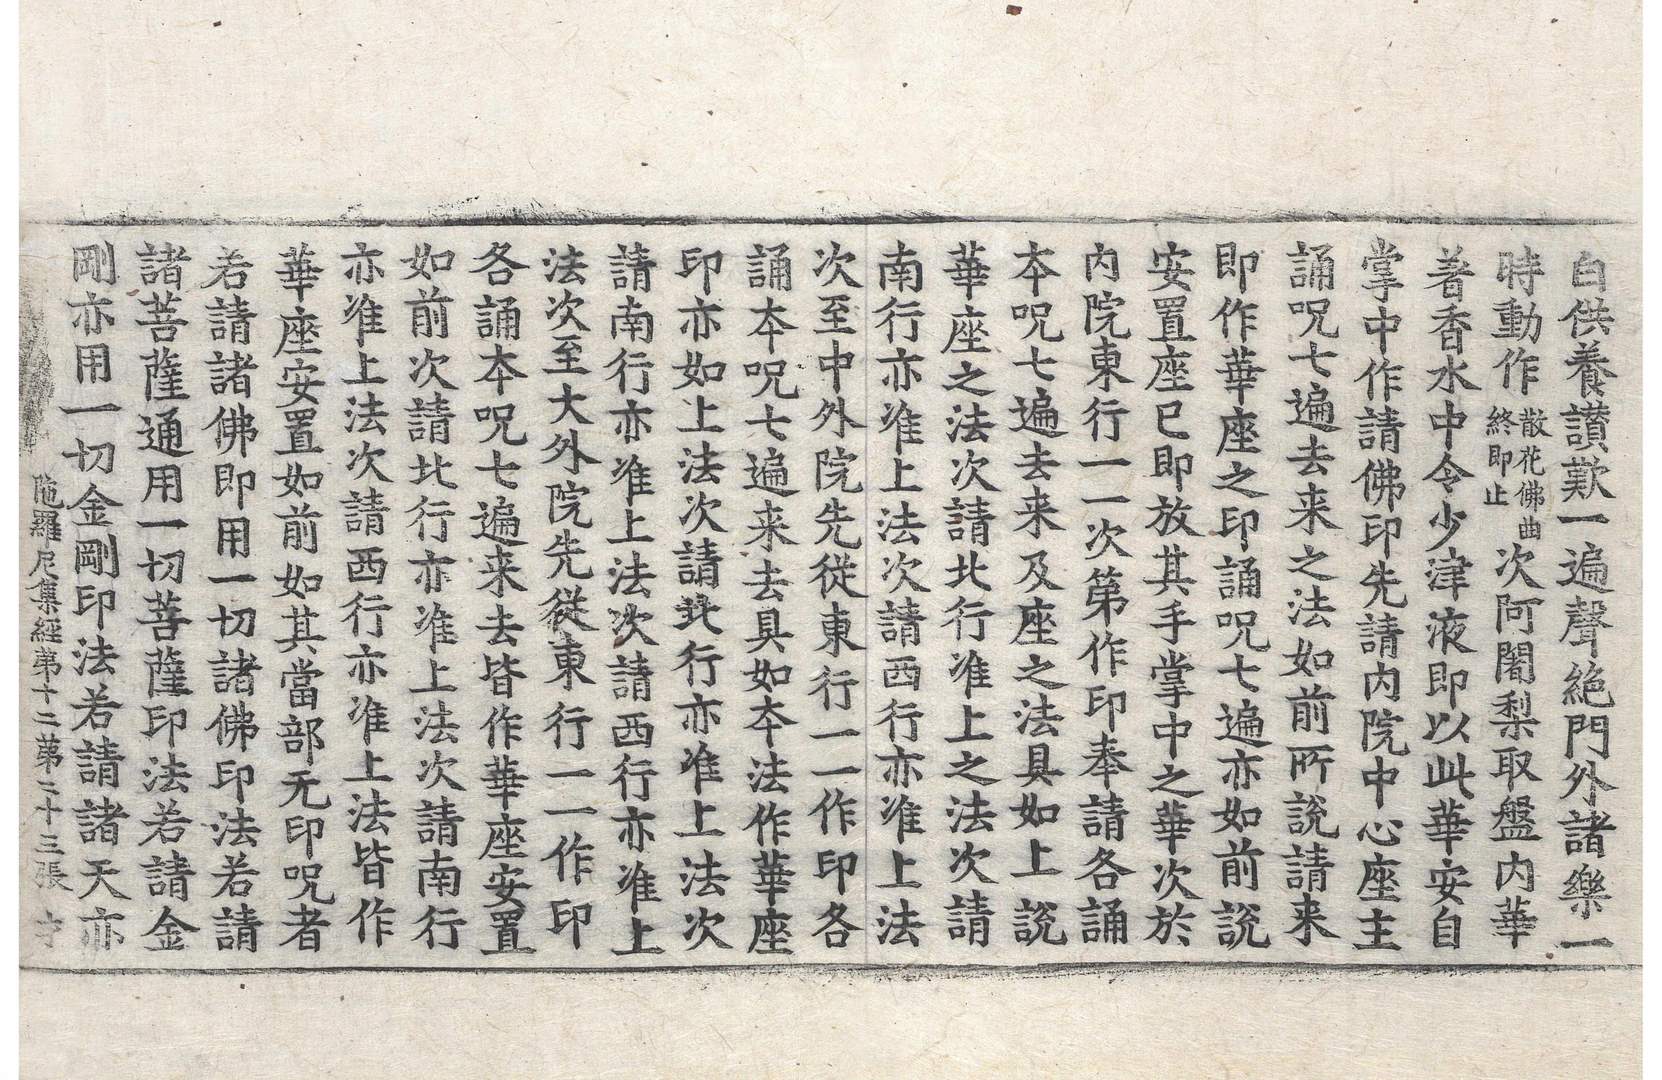 白供養讃歎一遍聲絶門外諸樂一
時動作散花佛曲終即止次阿闍梨取盤内華
著香水中令少津液即以此華安自
掌中作請佛印先請内院中心座主
誦呪七遍去来之法如前所說請来
即作華座之印誦呪七遍亦如前說
安置座已即放其手掌中之華次於
内院東行一一次第作印奉請各誦
本呪七遍去来及座之法具如上說
華座之法次請北行准上之法次請
南行亦准上法次請西行亦准上法
次至中外院先從東行一一作印各
誦本呪七遍来去具如本法作華座
印亦如上法次請北行亦准上法次
請南行亦准上法次請西行亦准上
法次至大外院先從東行一一作印
各誦本呪七遍来去皆作華座安置
如前次請北行亦准上法次請南行
亦准上法次請西行亦准上法皆作
華座安置如前如其當部无印呪者
若請諸佛即用一切諸佛印法若請
諸菩薩通用一切菩薩印法若請金
剛亦用一切金剛印法若請諸天亦
陁羅尼集經第十二第二十三張 才